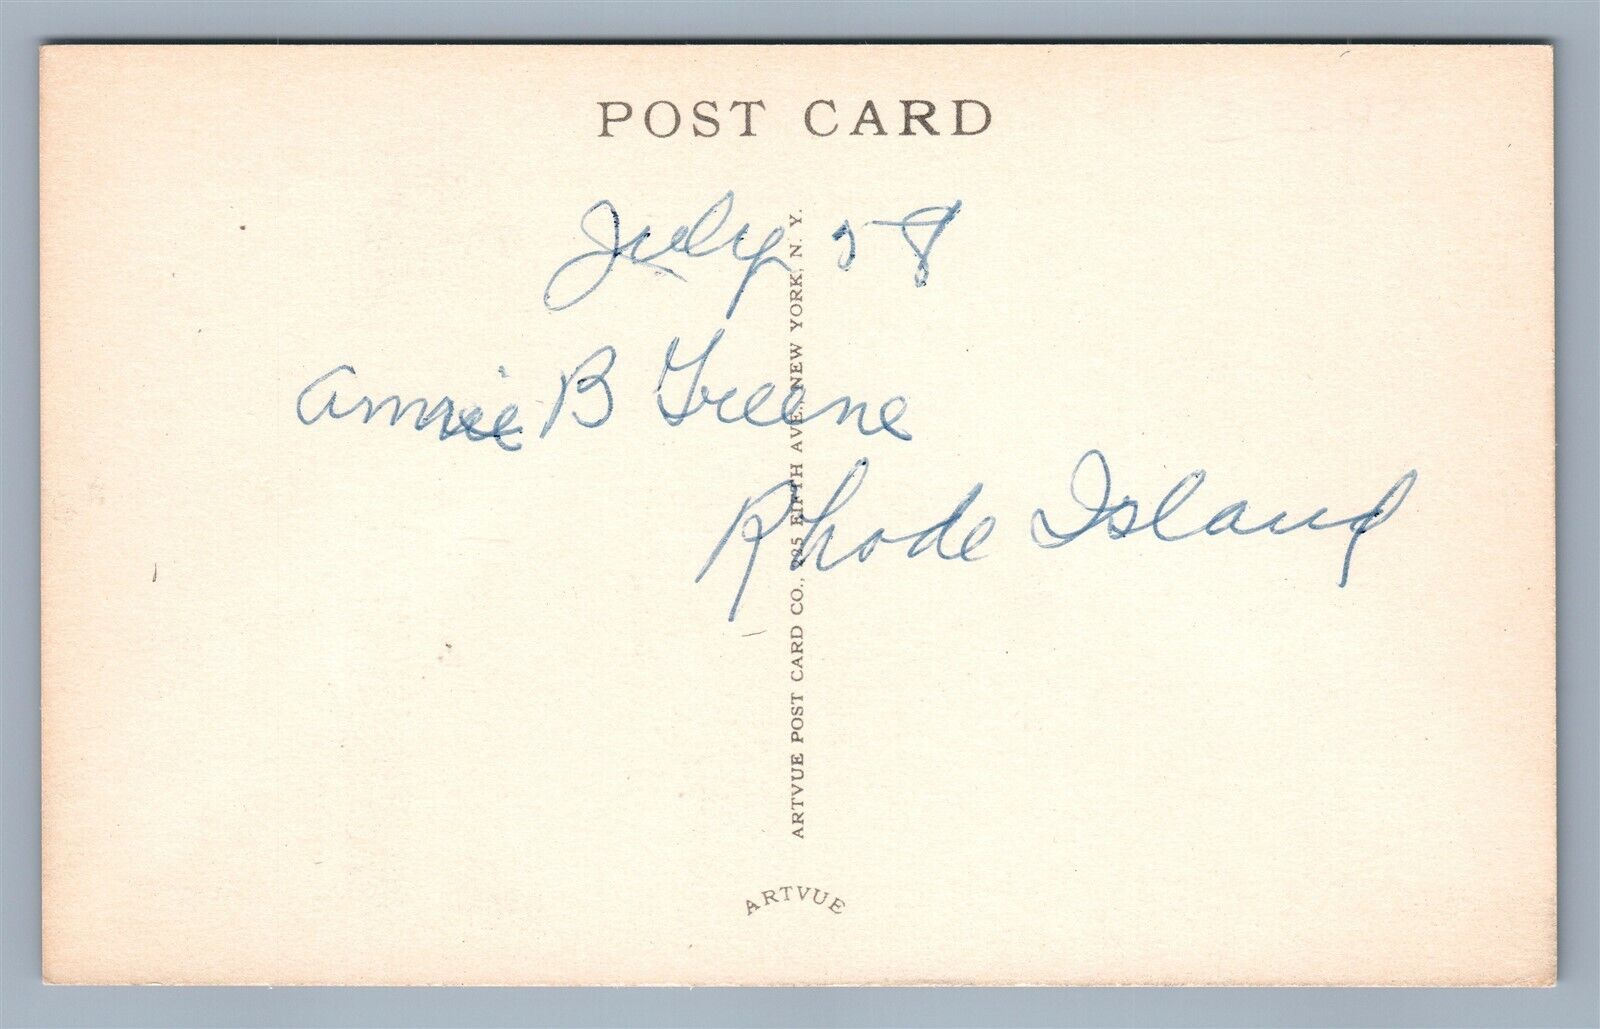 POST CARD
July 58
Annie B Greene
Rhode Island
ARTVUE POST CARD CO., 225 FIFTH AVE., NEW YORK, N. Y.
ARTVUE